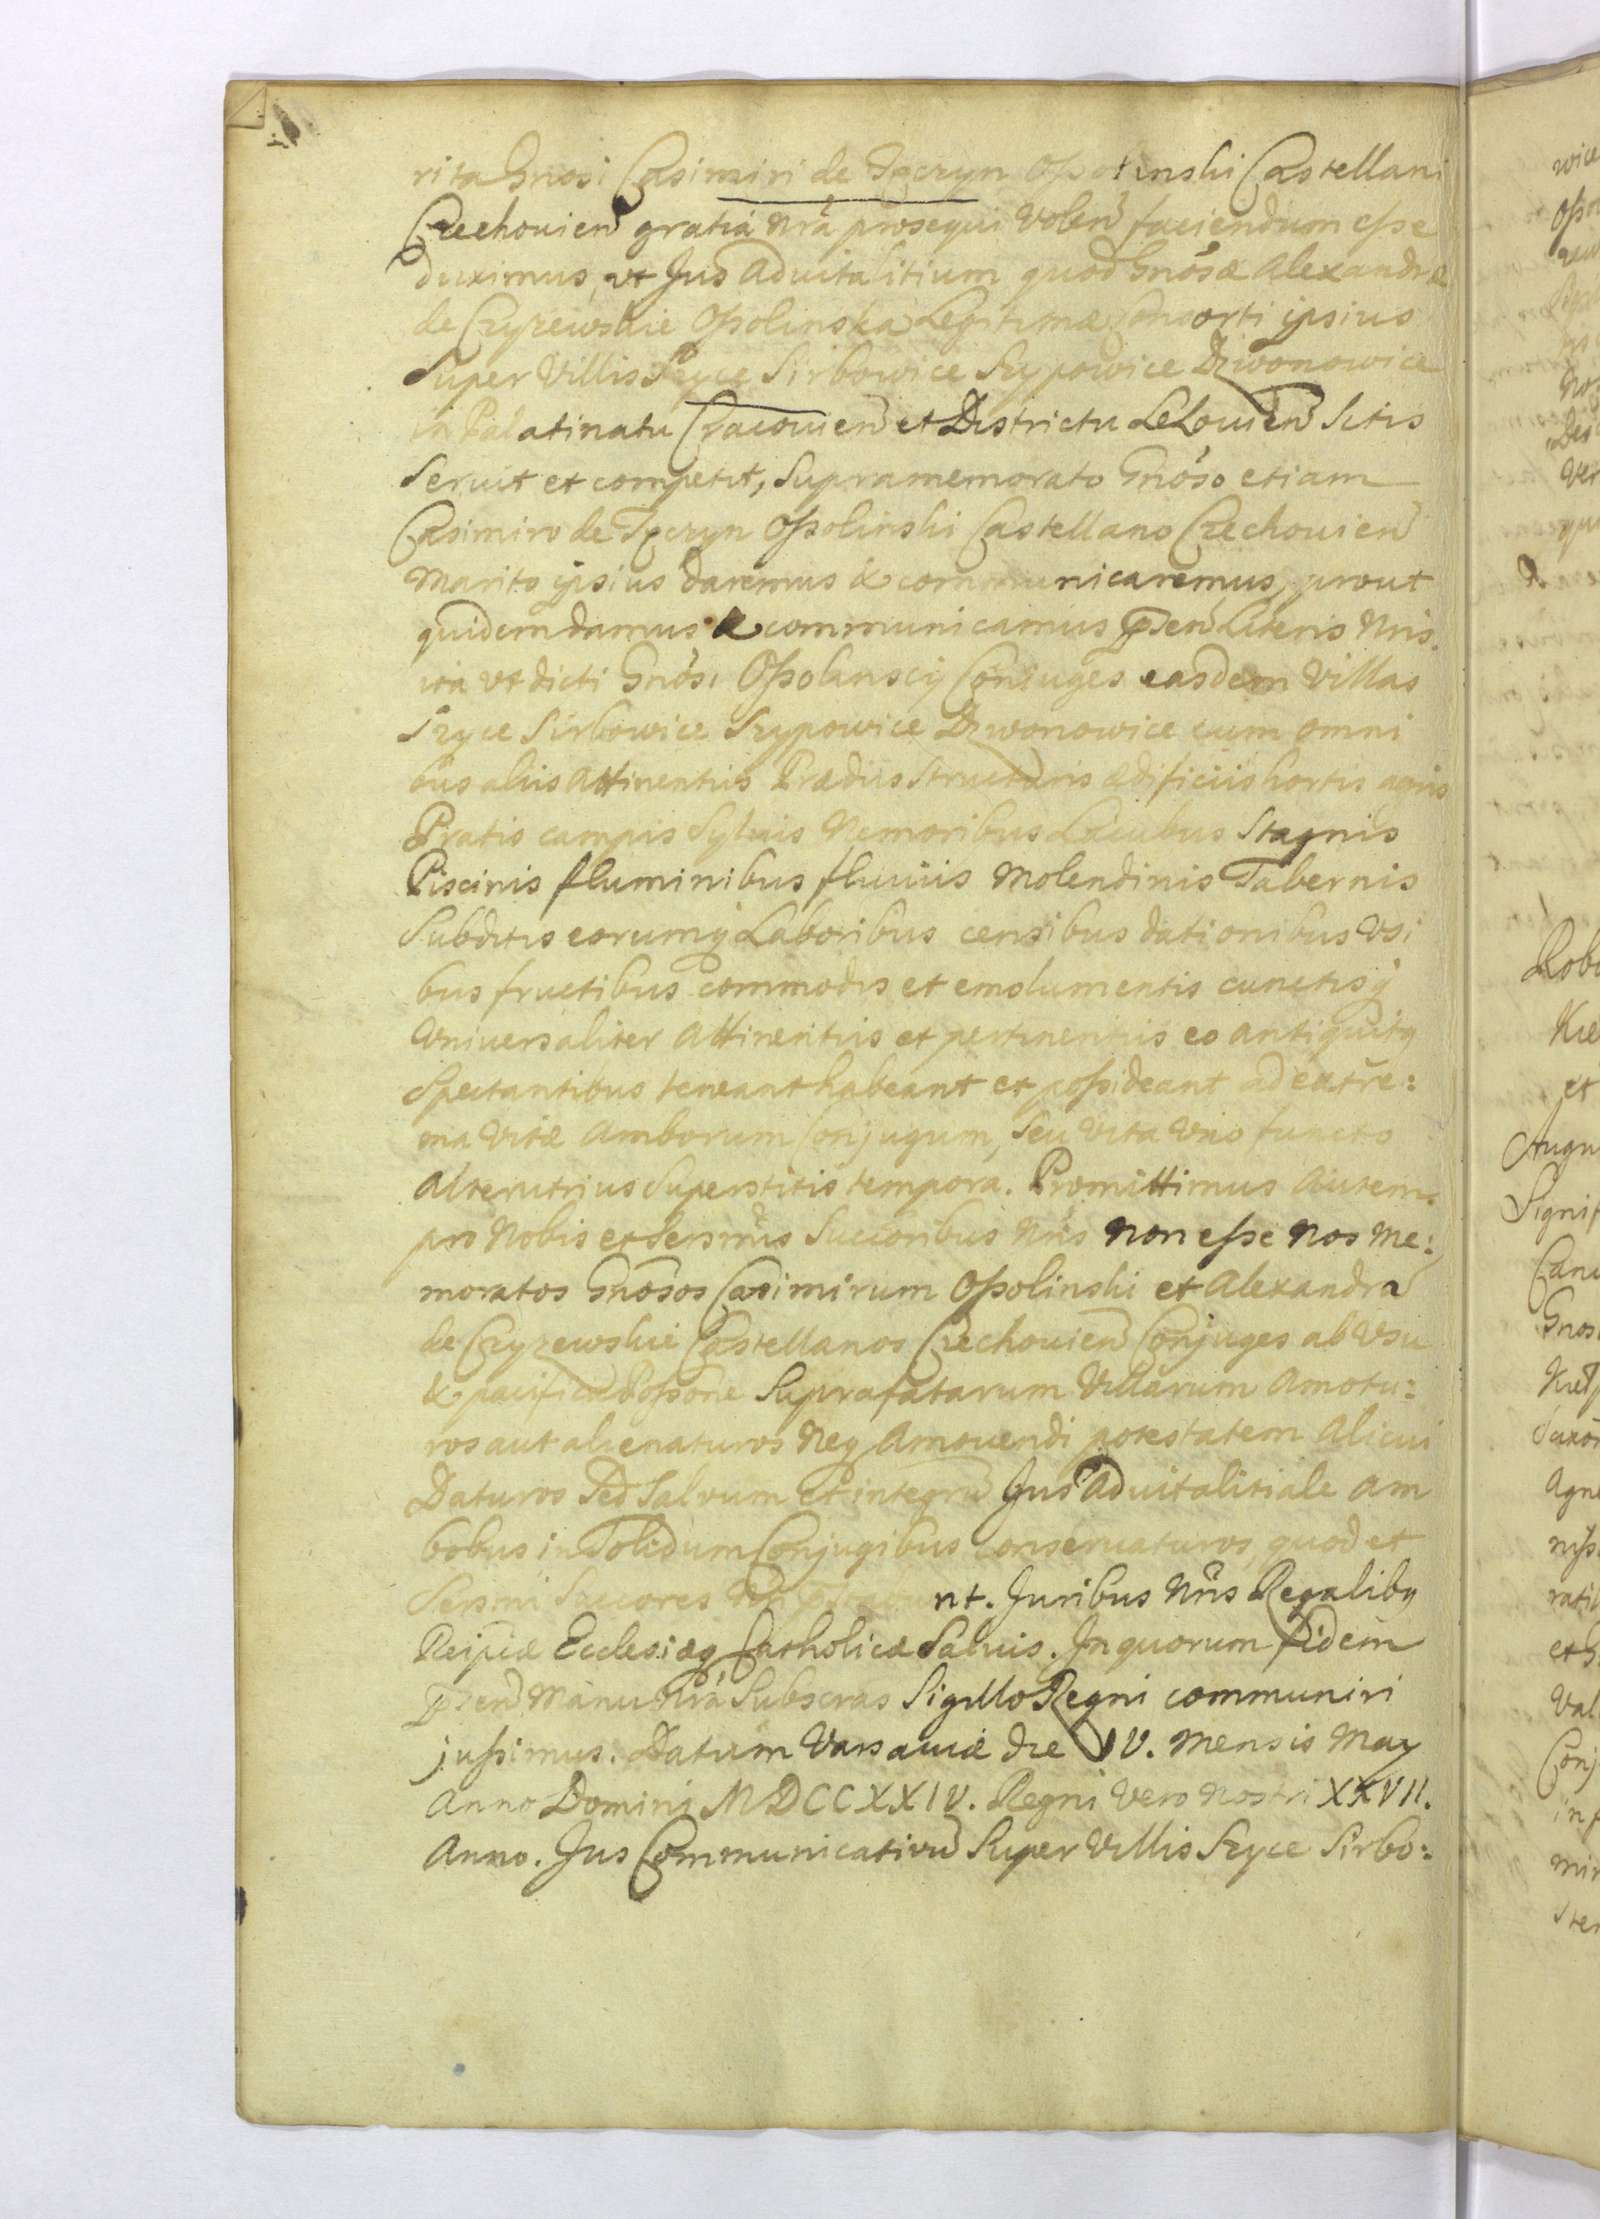 rita Gnosi Casimiri de Tęczyn Ossolinski Castellani
Czechovien gratiá nrá prosequi volen faciendum esse
duximus, vt Jus Advitalitium quod Gnósæ Alexandræ
de Czyzewskie Ossolinska Legitimæ Consorti ipsius
Super Villis Szyce Sirbowice Szypowice Dzwonowice
in Palatinatu Cracovien et Districtu Lelovien Sitis
Servit et competit, Supramemorato Gnóso etiam
Casimiro de Tęczyn Ossolinski Castellano Czechovien
Marito ipsius daremus & communicaremus, prout
quidem damus & communicamus pñsen Literis Nris.
ita vt dicti Gnósi Ossolinscij Conjuges easdem Villas
Szyce Sirbowice Szypowice Dzwonowice cum omni
bus aliis Attinentiis Prædiis Structuris ædificiis hortis agris
Pratis campis Sylvis Nemoribus Lacubus Stagnis
Piscinis fluminibus fluviis Molendinis Tabernis
Subditis eorumq Laboribus censibus dationibus Vsi
bus fructibus commodis et emolumentis cunctisq
Vniversaliter Attinentiis et pertinentiis eo antiquitq
Spectantibus teneant habeant et possideant ad extre:
ma Vitæ Amborum Conjugum, Seu Vita Vno functo
Alterutrius Superstitis tempora. Promittimus Autem
pro Nobis et Sersmis Succoribus Nris non esse Nos Me:
moratos Gnósos Casimirum Ossolinski et Alexandra
de Czyzewskie Castellanos Czechovien Conjuges ab Vsu
& pacifica Possone Suprafatarum Villarum Amotu:
ros aut alienaturos Neq Amovendi potestatem Alicui
Daturos Sed Salvum et integrũ Jus Advitalitiale am
bobus in Solidum Conjugibus conservaturos, quod et
Sersmi Succores Nri nt. Juribus Nris Regalibq
Reipcæ Ecclesiæq Catholicæ Salvis. In quorum fidem
Pñsen Manu Nrá Subscras Sigillo Regni communiri
jussimus. Datum Varsaviæ die IV. Mensis May
Anno Domini MDCCXXIV. Regni Vero Nostri XXVII.
Anno. Jus Communicativũ Super Villis Szyce Sirbo: